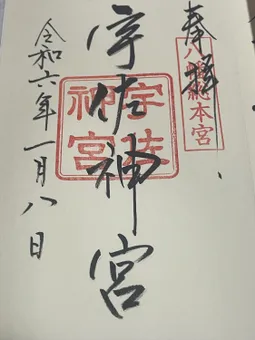 奉拝
八幡総本宮
宇佐神宮
宇佐神宮
令和六年一月八日